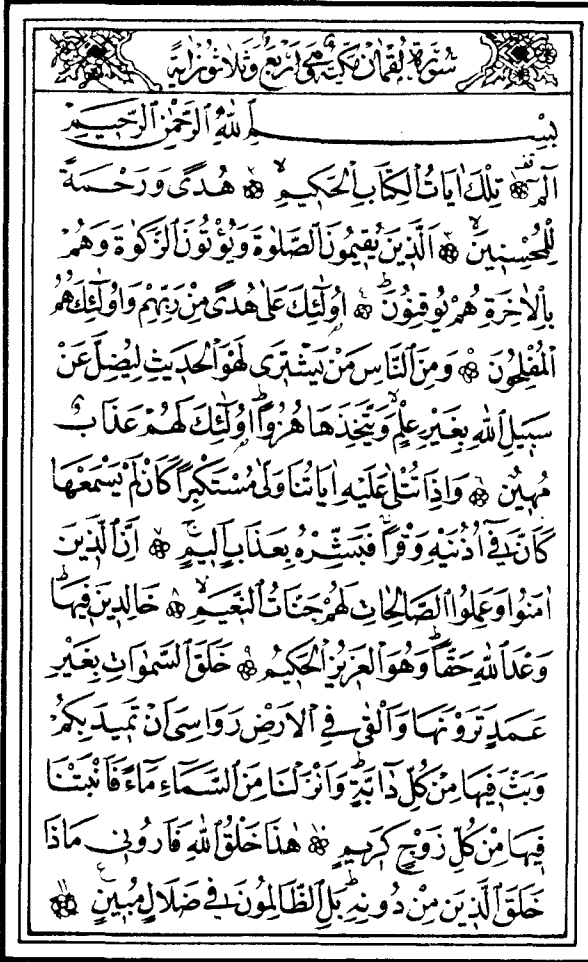 سُورَةُ لُقْمَانَ مَكِّيَّةٌ وَهِيَ أَرْبَعٌ وَثَلَاثُونَ اٰيَةً
بِسْمِ اللّٰهِ الرَّحْمٰنِ الرَّحِيمِ
الٓمٓ ۞ تِلْكَ اٰيَاتُ الْكِتَابِ الْحَكِيمِ ۞ هُدًى وَرَحْمَةً
لِلْمُحْسِنِينَ ۞ اَلَّذِينَ يُقِيمُونَ الصَّلٰوةَ وَيُؤْتُونَ الزَّكٰوةَ وَهُمْ
بِالْاٰخِرَةِ هُمْ يُوقِنُونَ ۞ اُولٰٓئِكَ عَلٰى هُدًى مِنْ رَبِّهِمْ وَاُولٰٓئِكَ هُمُ
الْمُفْلِحُونَ ۞ وَمِنَ النَّاسِ مَنْ يَشْتَرِى لَهْوَ الْحَدِيثِ لِيُضِلَّ عَنْ
سَبِيلِ اللّٰهِ بِغَيْرِ عِلْمٍ وَيَتَّخِذَهَا هُزُوًا اُولٰٓئِكَ لَهُمْ عَذَابٌ
مُهِينٌ ۞ وَاِذَا تُتْلٰى عَلَيْهِ اٰيَاتُنَا وَلّٰى مُسْتَكْبِرًا كَاَنْ لَمْ يَسْمَعْهَا
كَاَنَّ فِٓى اُذُنَيْهِ وَقْرًا فَبَشِّرْهُ بِعَذَابٍ اَلِيمٍ ۞ اِنَّ الَّذِينَ
اٰمَنُوا وَعَمِلُوا الصَّالِحَاتِ لَهُمْ جَنَّاتُ النَّعِيمِ ۞ خَالِدِينَ فِيهَا
وَعْدَ اللّٰهِ حَقًّا وَهُوَ الْعَزِيزُ الْحَكِيمُ ۞ خَلَقَ السَّمٰوَاتِ بِغَيْرِ
عَمَدٍ تَرَوْنَهَا وَاَلْقٰى فِى الْاَرْضِ رَوَاسِىَ اَنْ تَمِيدَ بِكُمْ
وَبَثَّ فِيهَا مِنْ كُلِّ دَٓابَّةٍ وَاَنْزَلْنَا مِنَ السَّمَٓاءِ مَٓاءً فَاَنْبَتْنَا
فِيهَا مِنْ كُلِّ زَوْجٍ كَرِيمٍ ۞ هٰذَا خَلْقُ اللّٰهِ فَاَرُونِى مَاذَا
خَلَقَ الَّذِينَ مِنْ دُونِهِ بَلِ الظَّالِمُونَ فِى ضَلَالٍ مُبِينٍ ۞